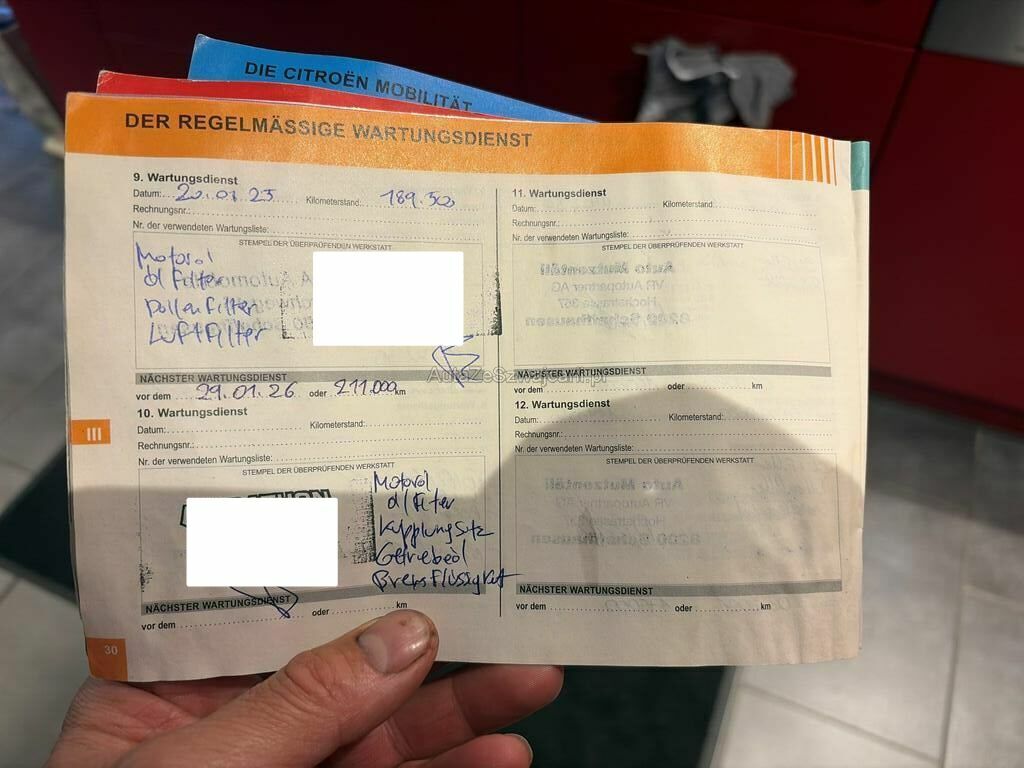 DIE CITROËN MOBILITÄT
DER REGELMÄSSIGE WARTUNGSDIENST
9. Wartungsdienst
Datum: 20.01.25 Kilometerstand: 189.500
Rechnungsnr.:
Nr. der verwendeten Wartungsliste:
STEMPEL DER ÜBERPRÜFENDEN WERKSTATT
Motoröl
ölFilter
Pollenfilter
LuftFilter
NÄCHSTER WARTUNGSDIENST
vor dem 29.01.26 oder 211.000 km
10. Wartungsdienst
Datum: Kilometerstand:
Rechnungsnr.:
Nr. der verwendeten Wartungsliste:
STEMPEL DER ÜBERPRÜFENDEN WERKSTATT
Motoröl
ölFilter
Kupplungsitz
Getriebeöl
NÄCHSTER WARTUNGSDIENST
vor dem oder km
11. Wartungsdienst
Datum: Kilometerstand:
Rechnungsnr.:
Nr. der verwendeten Wartungsliste:
STEMPEL DER ÜBERPRÜFENDEN WERKSTATT
NÄCHSTER WARTUNGSDIENST
vor dem oder km
12. Wartungsdienst
Datum: Kilometerstand:
Rechnungsnr.:
Nr. der verwendeten Wartungsliste:
STEMPEL DER ÜBERPRÜFENDEN WERKSTATT
NÄCHSTER WARTUNGSDIENST
vor dem oder km
III
30
AutaZeSzwajcarii.pl